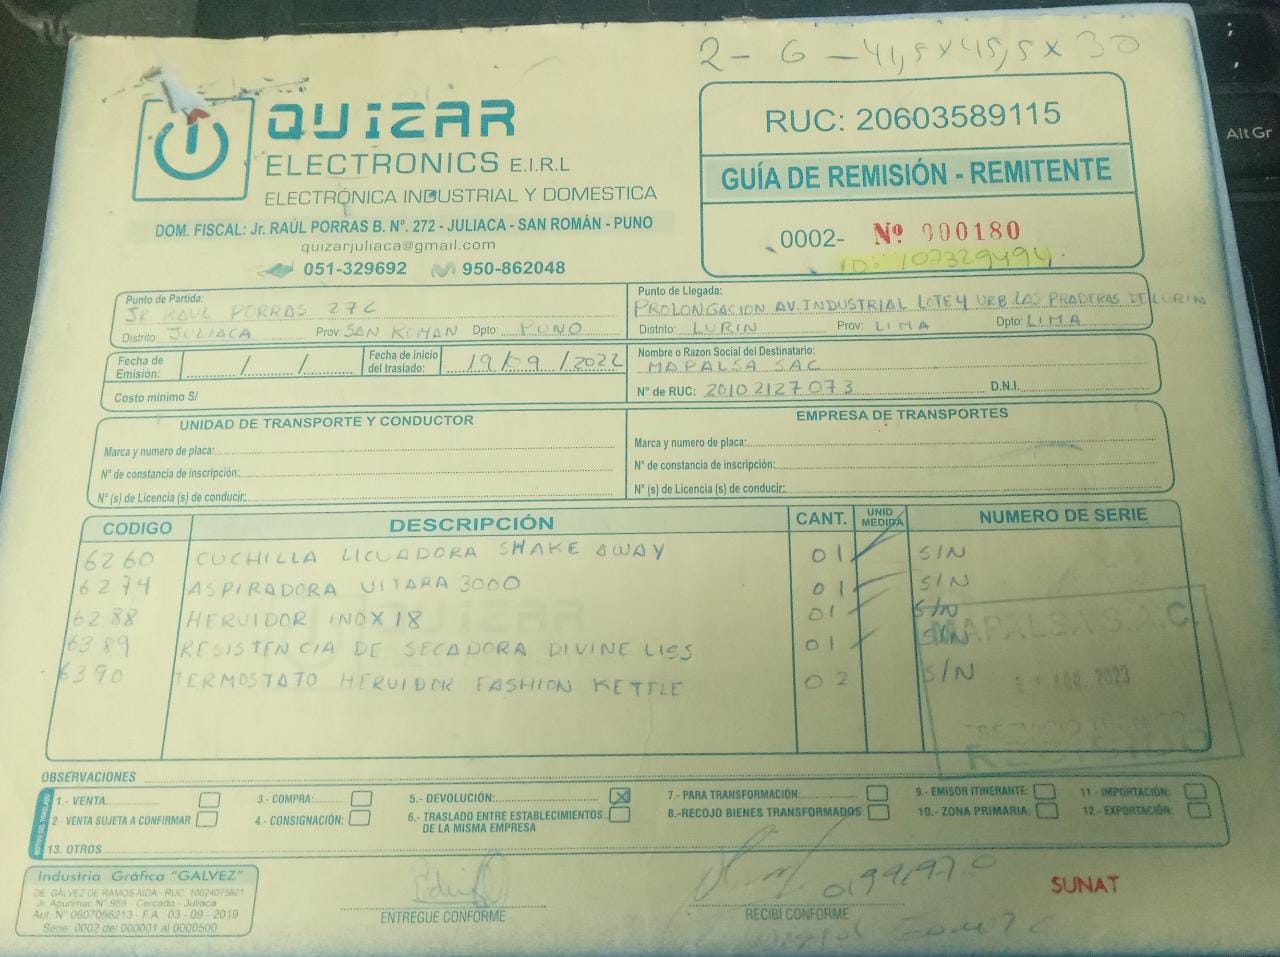 2 - 6 - 41,5 x 45,5 x 30
QUIZAR
ELECTRONICS E.I.R.L
ELECTRÓNICA INDUSTRIAL Y DOMESTICA
DOM. FISCAL: Jr. RAÚL PORRAS B. N°. 272 - JULIACA - SAN ROMÁN - PUNO
quizarjuliaca@gmail.com
051-329692 950-862048
RUC: 20603589115
GUÍA DE REMISIÓN - REMITENTE
0002- Nº 000180
ID: 107329494
Punto de Partida:
JR RAUL PORRAS 272
Distrito: JULIACA Prov: SAN ROMAN Dpto: PUNO
Punto de Llegada:
PROLONGACION AV. INDUSTRIAL LOTE 4 URB LAS PRADERAS DE LURIN
Distrito: LURIN Prov: LIMA Dpto: LIMA
Fecha de Emisión: / /
Fecha de inicio del traslado: 19/09/2022
Costo mínimo S/
Nombre o Razon Social del Destinatario:
MAPALSA SAC
N° de RUC: 20102127073 D.N.I.
UNIDAD DE TRANSPORTE Y CONDUCTOR
Marca y numero de placa:
N° de constancia de inscripción:
N° (s) de Licencia (s) de conducir:
EMPRESA DE TRANSPORTES
Marca y numero de placa:
N° de constancia de inscripción:
N° (s) de Licencia (s) de conducir:
CODIGO DESCRIPCIÓN CANT. UNID MEDIDA NUMERO DE SERIE
6260 CUCHILLA LICUADORA SHAKE AWAY 01 S/N
6274 ASPIRADORA VITARA 3000 01 S/N
6288 HERVIDOR INOX 18 01 S/N
6389 RESISTENCIA DE SECADORA DIVINE LISS 01 S/N
6390 TERMOSTATO HERVIDOR FASHION KETTLE 02 S/N
MAPALSA S.A.C.
2023
OBSERVACIONES
1.- VENTA
2.- VENTA SUJETA A CONFIRMAR
3.- COMPRA:
4.- CONSIGNACIÓN:
5.- DEVOLUCIÓN: X
6.- TRASLADO ENTRE ESTABLECIMIENTOS DE LA MISMA EMPRESA
7.- PARA TRANSFORMACIÓN:
8.- RECOJO BIENES TRANSFORMADOS
9.- EMISOR ITINERANTE:
10.- ZONA PRIMARIA:
11.- IMPORTACIÓN:
12.- EXPORTACIÓN:
13. OTROS
Industria Gráfica "GALVEZ"
DE: GÁLVEZ DE RAMOS AIDA - RUC: 10024075821
Jr. Apurimac N° 959 - Cercado - Juliaca
Aut. N° 0607056213 - F.A : 03 - 09 - 2019
Serie: 0002 del 000001 al 0000500
ENTREGUE CONFORME
RECIBI CONFORME
SUNAT